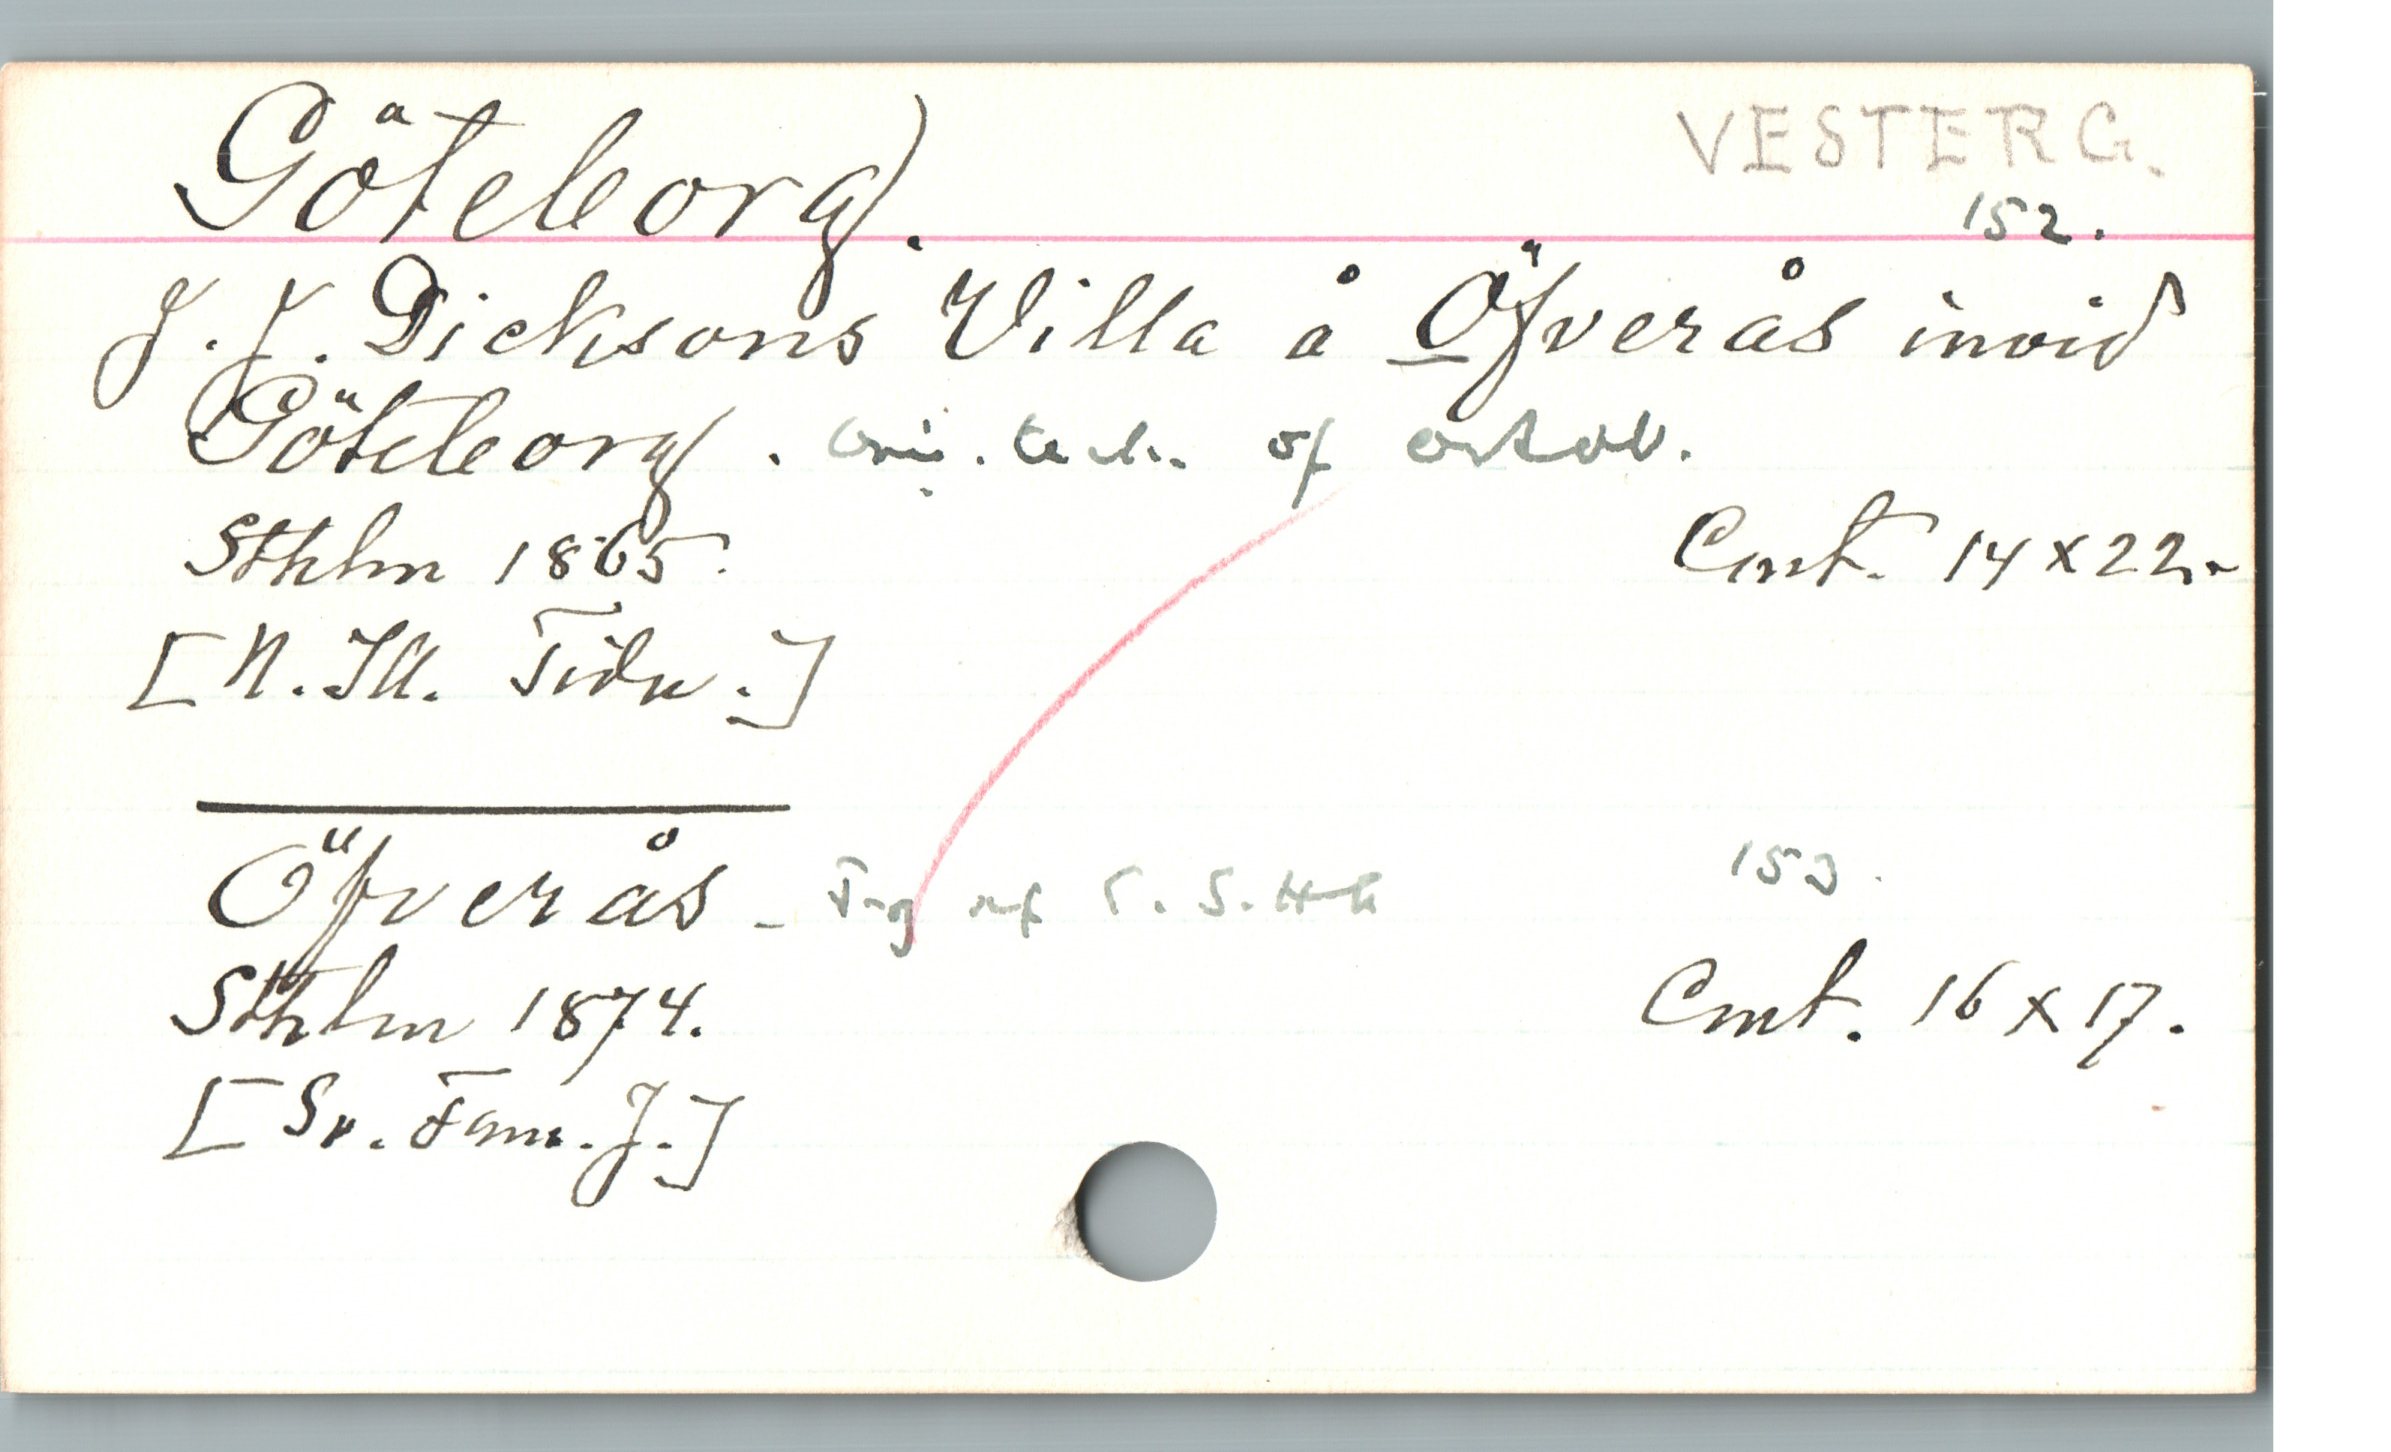 Göteborg.
VESTERG.
152.
J. J. Dicksons Villa å Öfverås invid
Göteborg. teck. of
Sthlm 1865. Cmt. 14 x 22.
[N. Ill. Tidn.]
153.
Öfverås - S.
Sthlm 1874. Cmt. 16 x 17.
[Sv. Fam. J.]